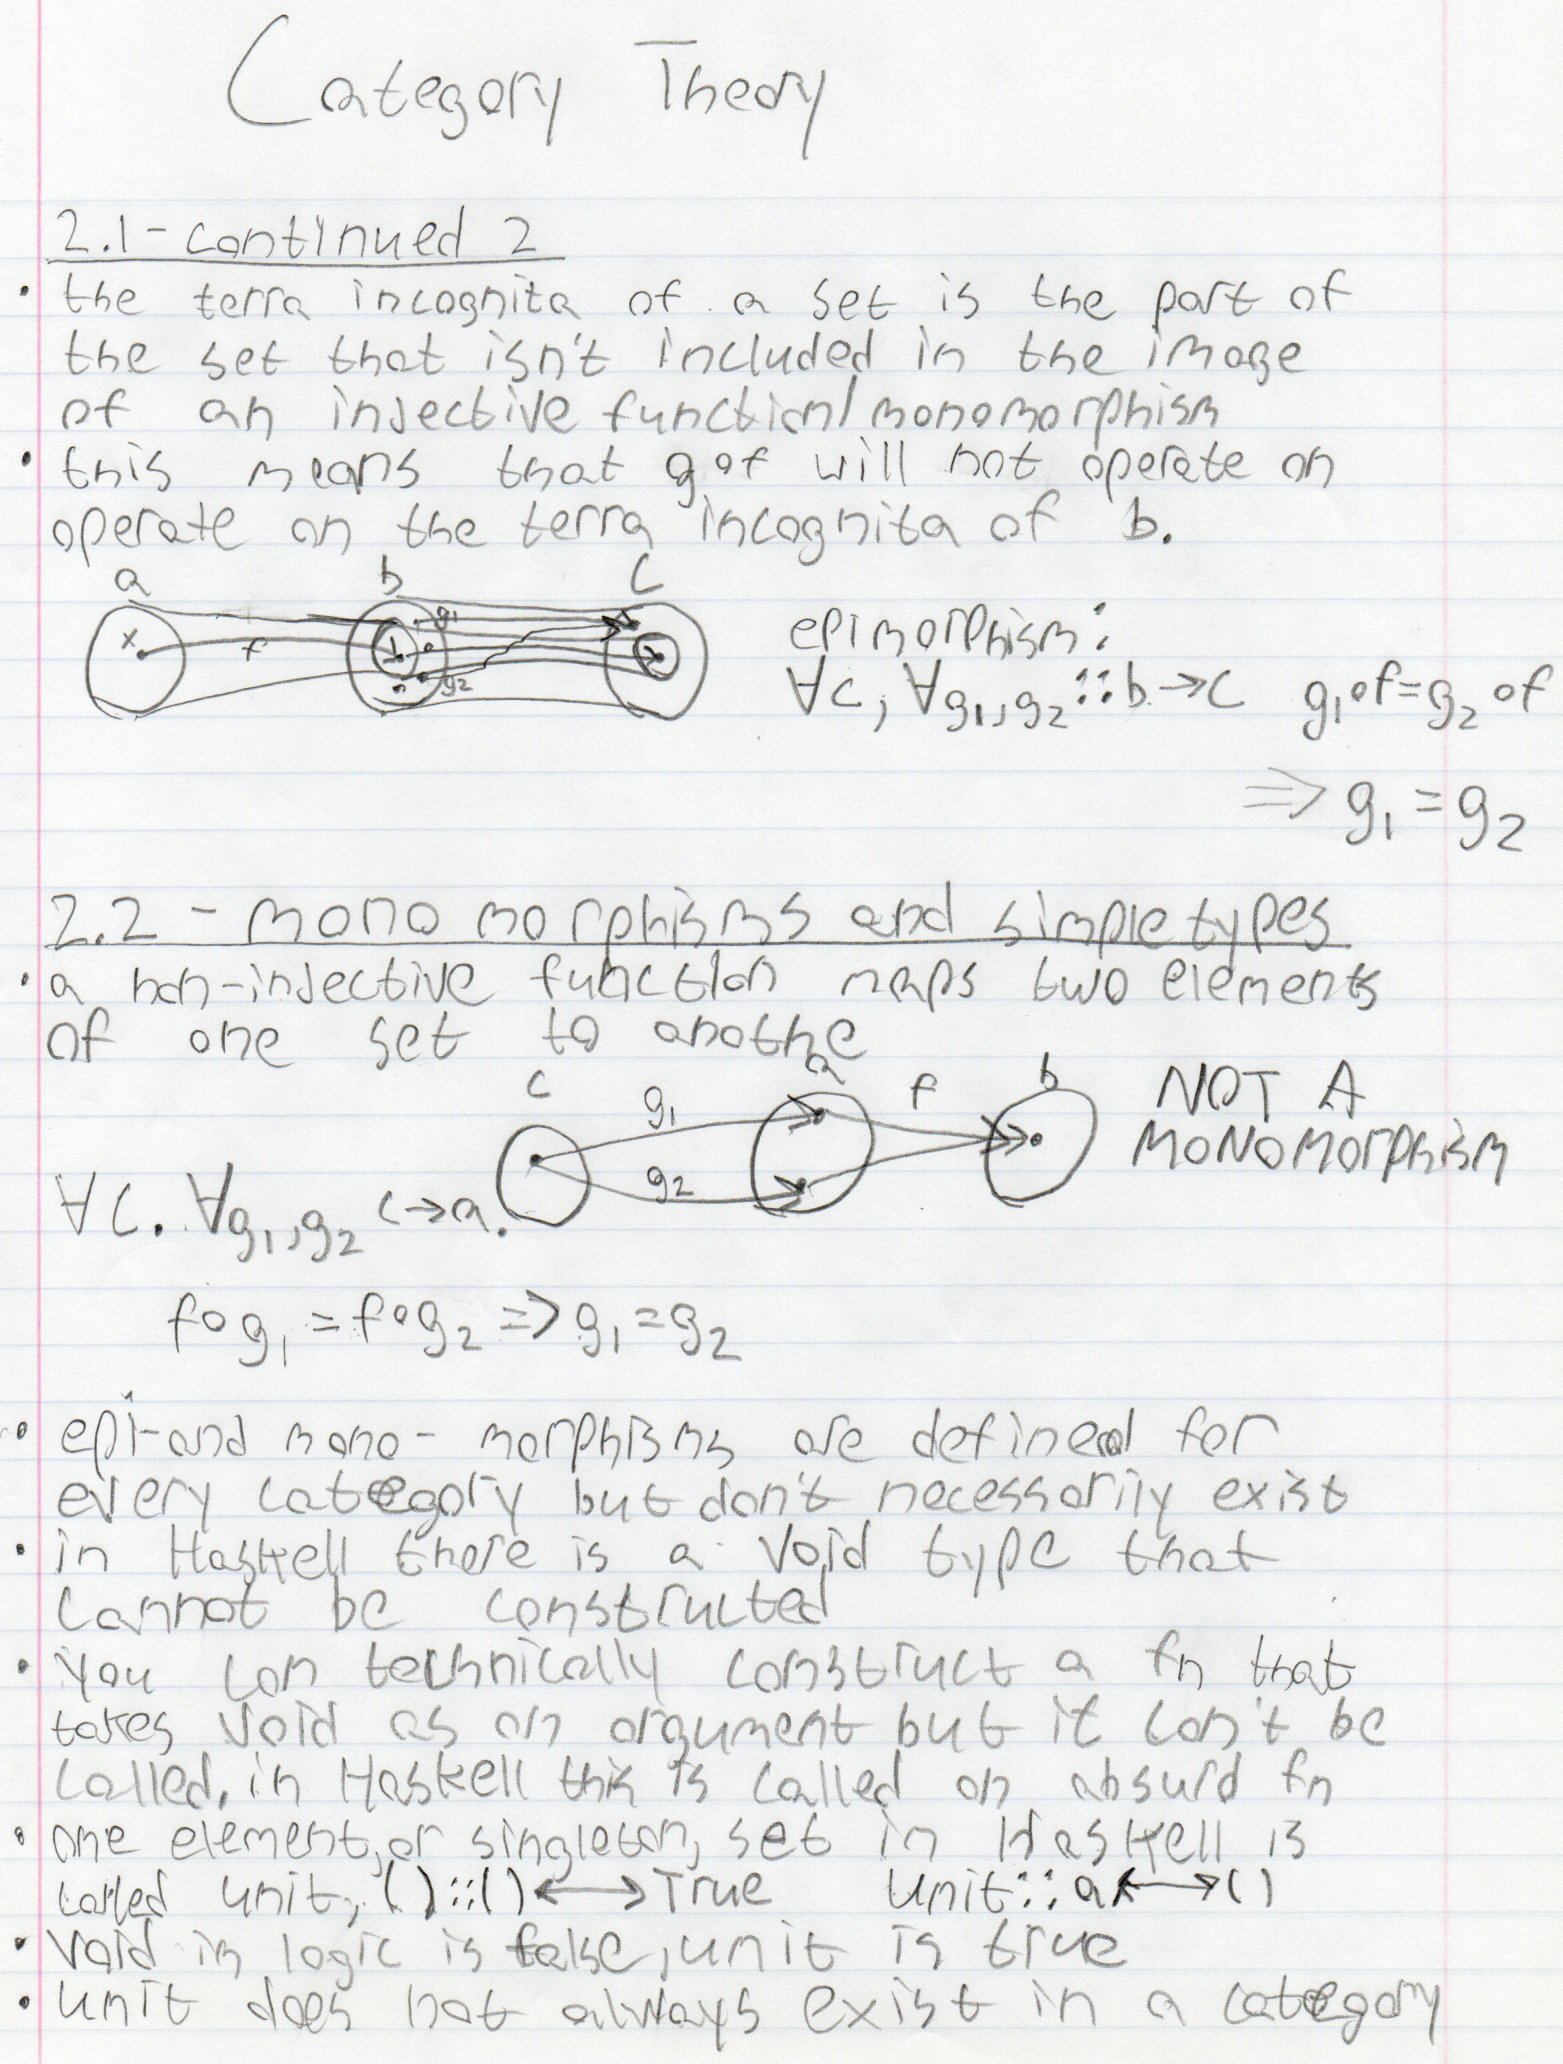 Category Theory
2.1 - continued 2
• the terra incognita of a set is the part of
the set that isn't included in the image
of an injective function/monomorphism
• this means that g∘f will not operate on
operate on the terra incognita of b.
a b c
x f g1 g2
epimorphism:
∀c, ∀g1,g2 :: b→c g1∘f = g2∘f
⇒ g1 = g2
2.2 - monomorphisms and simple types
• a non-injective function maps two elements
of one set to anothe
c g1 g2 a f b
NOT A
MONOMORPHISM
∀c. ∀g1,g2 c→a.
f∘g1 = f∘g2 => g1 = g2
• epi- and mono- morphisms are defined for
every category but don't necessarily exist
• in Haskell there is a Void type that
cannot be constructed
• you can technically construct a fn that
takes Void as an argument but it can't be
called, in Haskell this is called an absurd fn
• one element, or singleton, set in Haskell is
called unit, ()::() ⟷ True Unit::a ⟷ ()
• Void in logic is false, unit is true
• unit does not always exist in a category